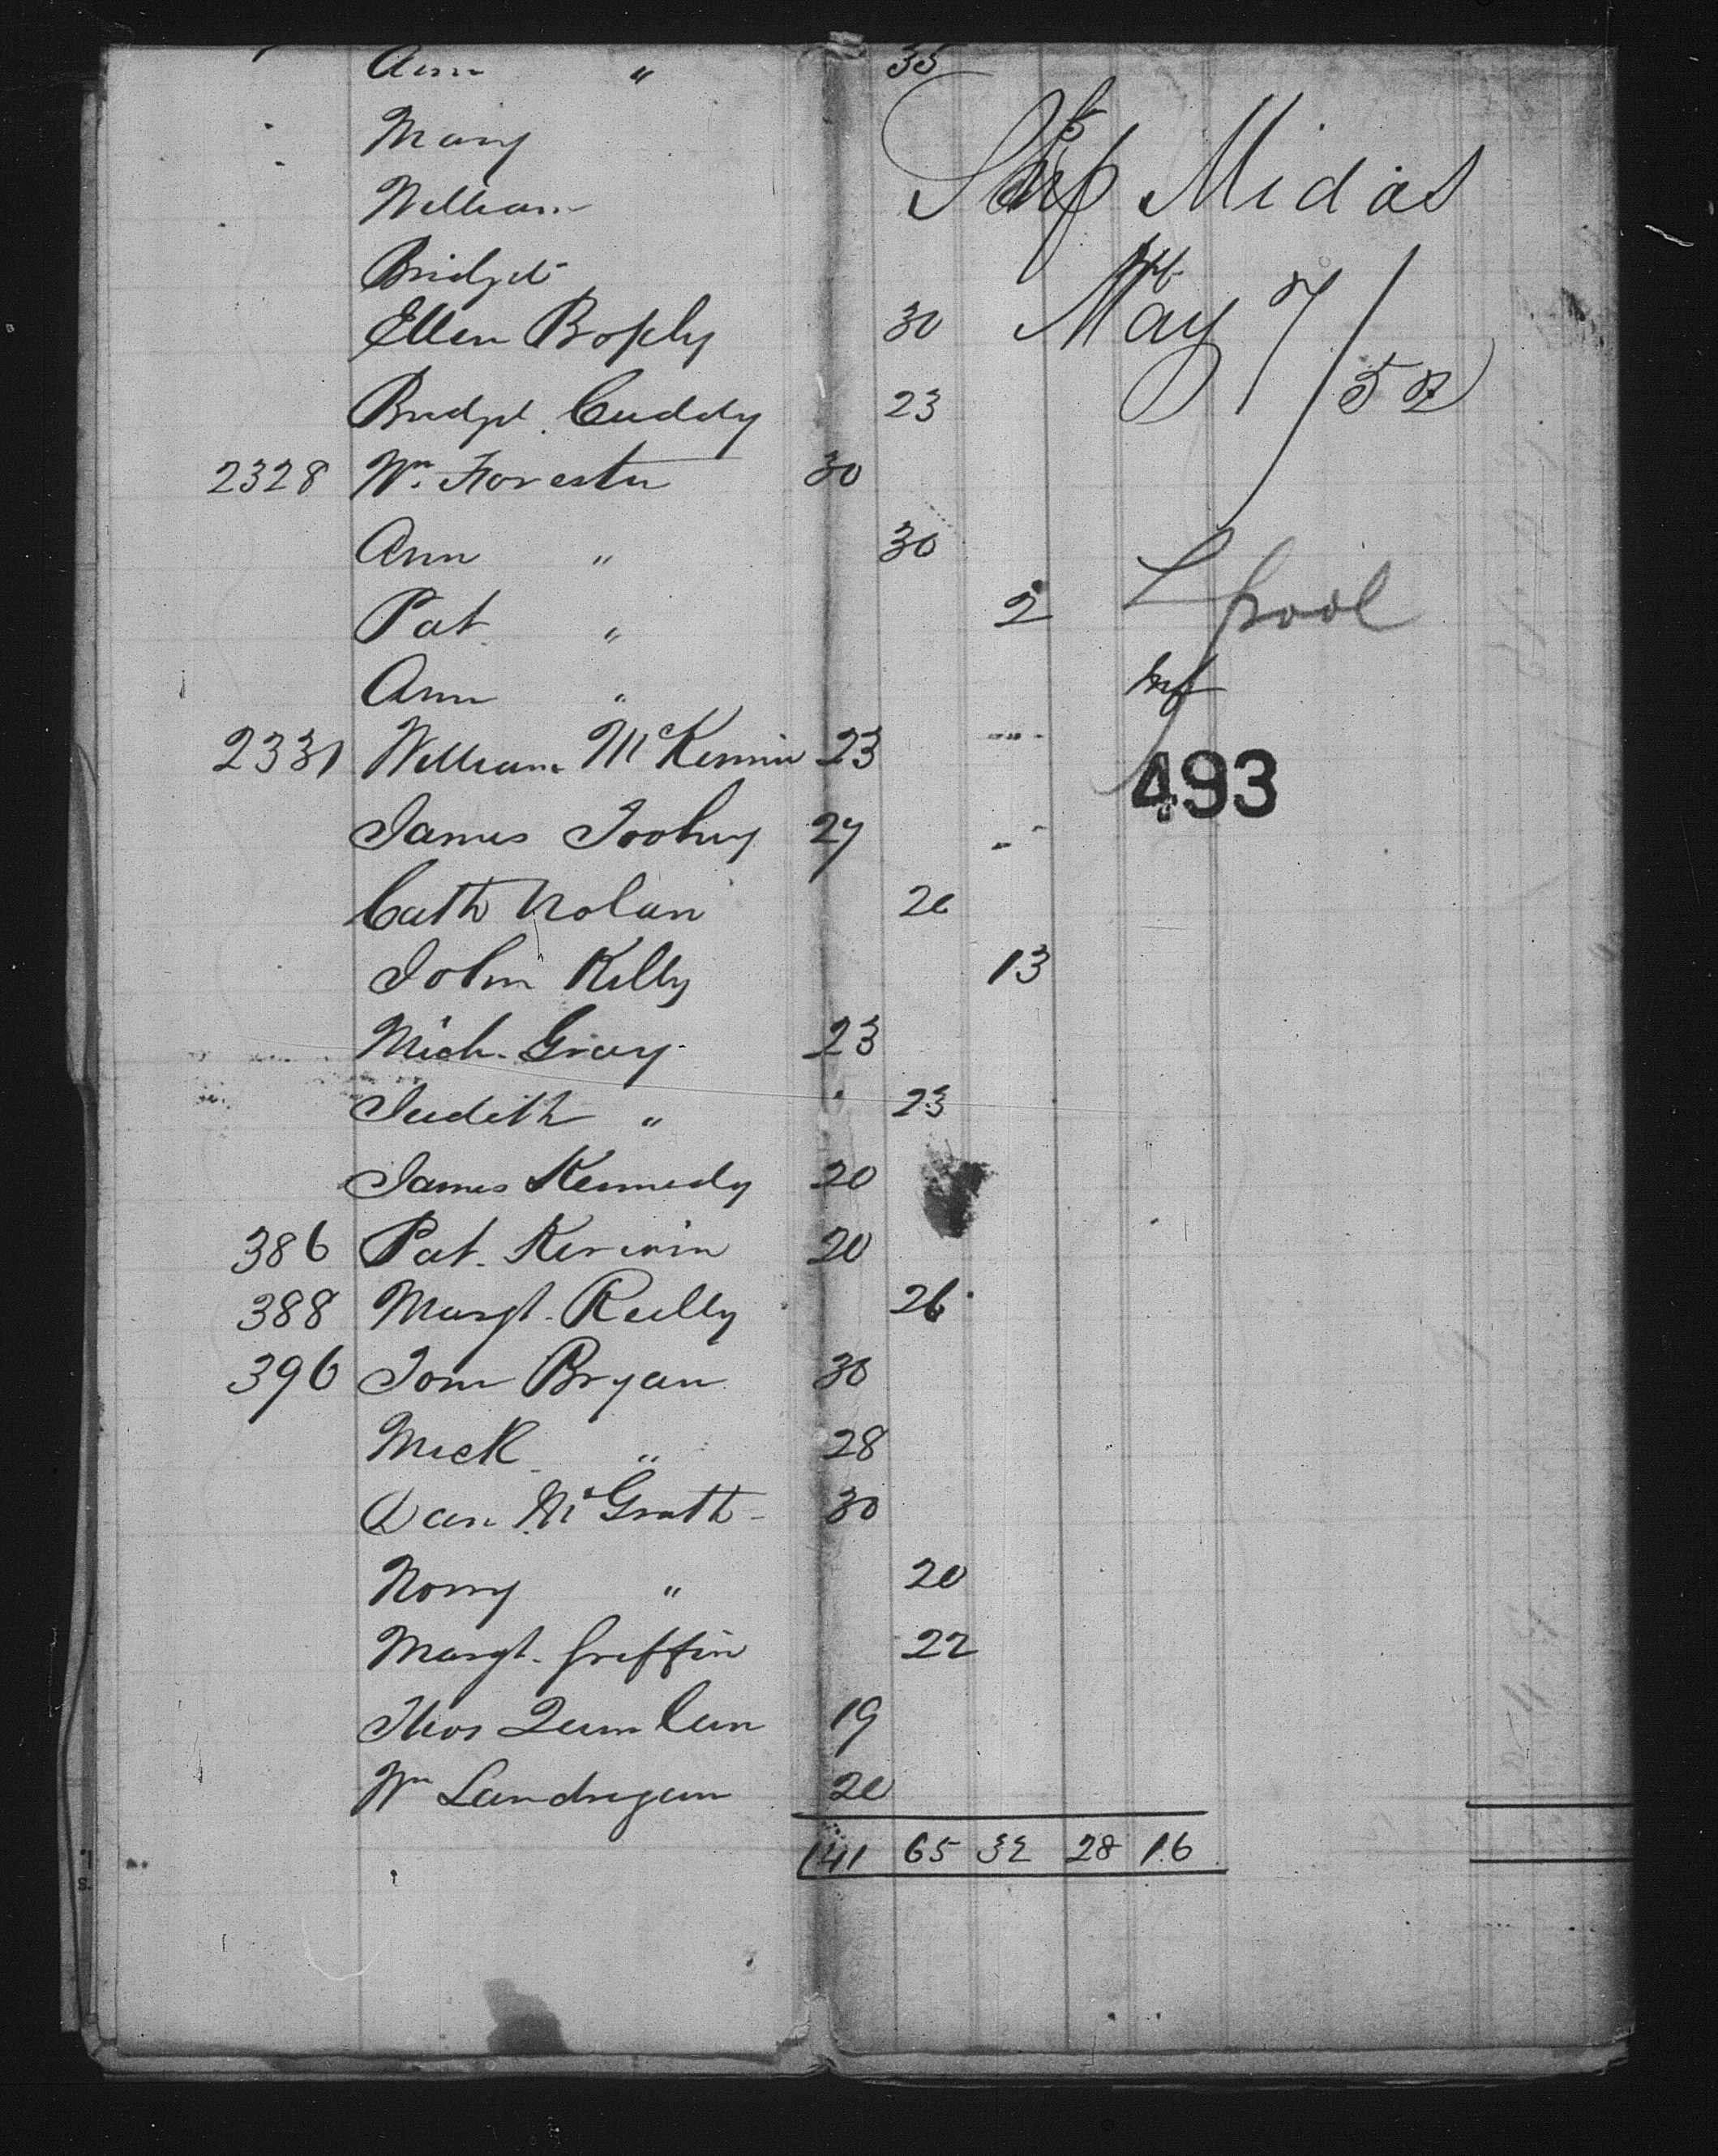 Ann " 35
Mary
William
Bridget
Ellen Brophy 30
Bridgt. Cuddy 23
2328 Wm. Forester 30
Ann " 30
Pat " 2
Ann "
2331 William McKennin 23
James Toohey 27
Cath Nolan 20
John Kelly 13
Mich. Gray 23
Judith " 23
James Kennedy 20
386 Pat. Kerwin 20
388 Margt. Reilly 26
396 Tom Bryan 30
Mick " 28
Dan McGrath 30
Norry " 20
Margt. Griffin 22
Thos Quinlan 19
Wm Landrigan 20
141 65 32 28 16
Ship Midas
May 7/52
Lpool
493